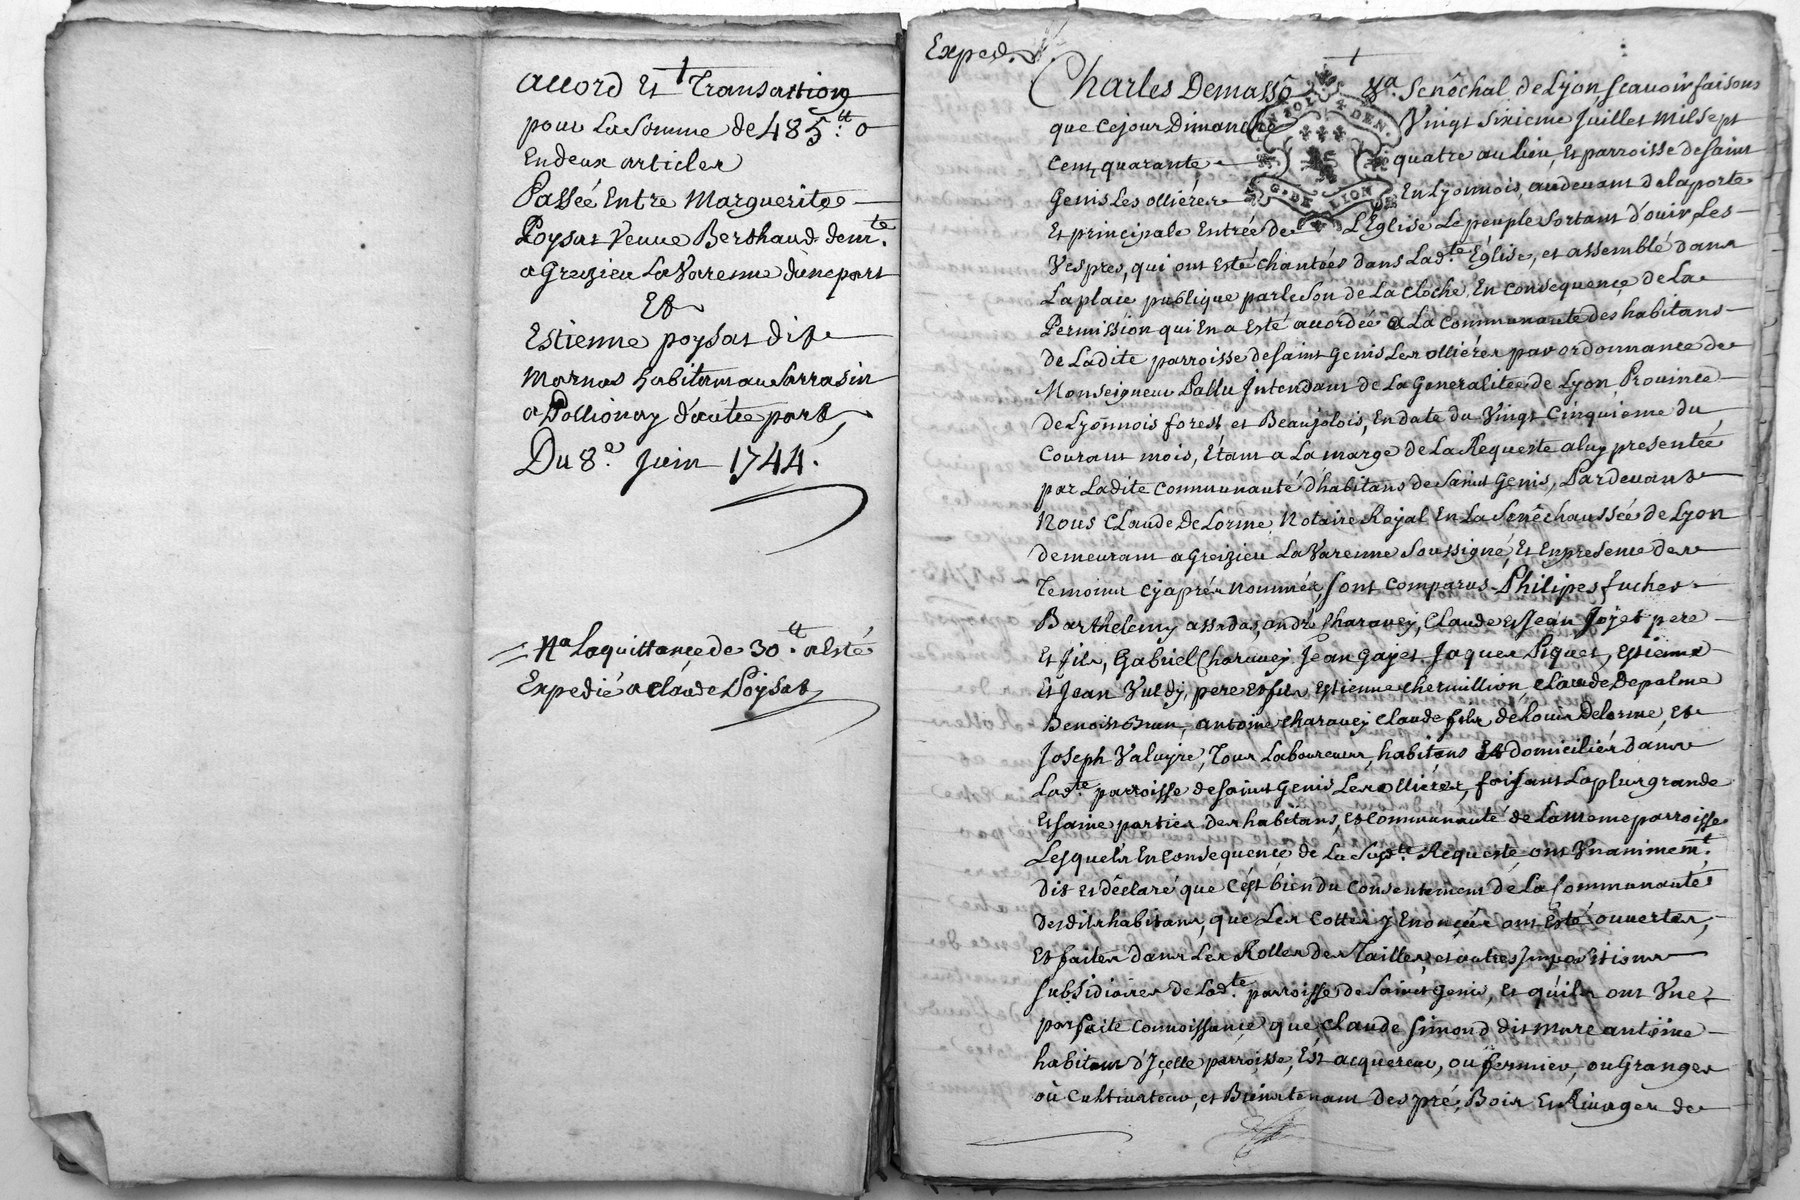 accord Et Transaction
pour La Somme de 485.tt 0
En deux articles
Passée Entre Marguerite
Poysat Veuve Berthaud dem.te
a Greizieu La Varenne d'une part
Et
Estienne poysat dit
Mornas habitant au Sarrasin
a Pollionay d'autre part
Du 8.e Juin 1744.
Na La quittance de 30.tt a Esté
Expedié a Claude Poysat
Exped.
Charles Demasso Sénéchal de Lyon Scavoir faisons
que Cejour Dimanche Vingt Sixieme Juillet Mil Sept
Cent quarante quatre au lieu Et parroisse de Saint
Genis Les ollieres En Lyonnois, au devant de la porte
Et principale Entrée de L'Eglise Le peuple Sortant d'ouir Les
Vespres, qui ont Esté chantées dans Lad.te Église, et assemblé dans
La place publique par le Son de La Cloche En Consequence de La
Permission qui En a Esté accordée a La Communauté des habitans
de Ladite parroisse de Saint Genis Les ollieres par ordonnance de
Monseigneur Pallu Intendant de La Generalitée de Lyon Province
de Lyonnois forest et Beaujolois, En date du Vingt Cinquieme du
Courant mois, Étant a La marge de La Requeste a luy presentée
par Ladite Communauté d'habitans de Saint Genis, Pardevant
Nous Claude De Lorme Notaire Royal En La Sénéchaussée de Lyon
demeurant a Greizieu La Varenne Soussigné, Et En presence des
Temoins Cy aprés nommés, sont Comparus Philipes fuches
Barthelemy assadas, andré Charavey, Claude et Jean Joyet pere
Et fils, Gabriel Charavey Jean Gayet Jaques Piquet, Estienne
Et Jean Vuldy, pere et fils, Estienne chermillion, Claude Depalme
Benoist Brun, antoine Charavey Claude fils de Louis Delorme, et
Joseph Valuyre, Tous Laboureurs, habitans Et domiciliés dans
Lad.te parroisse de Saint Genis Les ollieres, faisant La plus grande
Et saine parties des habitans, et Communauté de La meme parroisse
Lesquels En Consequence de La Susd.te Requeste ont Unanimem.t
dit et déclaré que C'est bien du Consentement de La Communauté
desdits habitans, que Les Cottes y Enoncées ont Esté ouvertes,
Et faites dans Les Rolles des Tailles et autres Impositions
subsidiaires de Lad.te parroisse de Saint Genis, et qu'ils ont Une
parfaite Connoissance que Claude Simond dit Marc antoine
habitant d'Icelle parroisse, Est acquereur, ou fermier, ou Granger
ou Cultivateur, et Biens tenant Des pré, Bois Et Rivages de